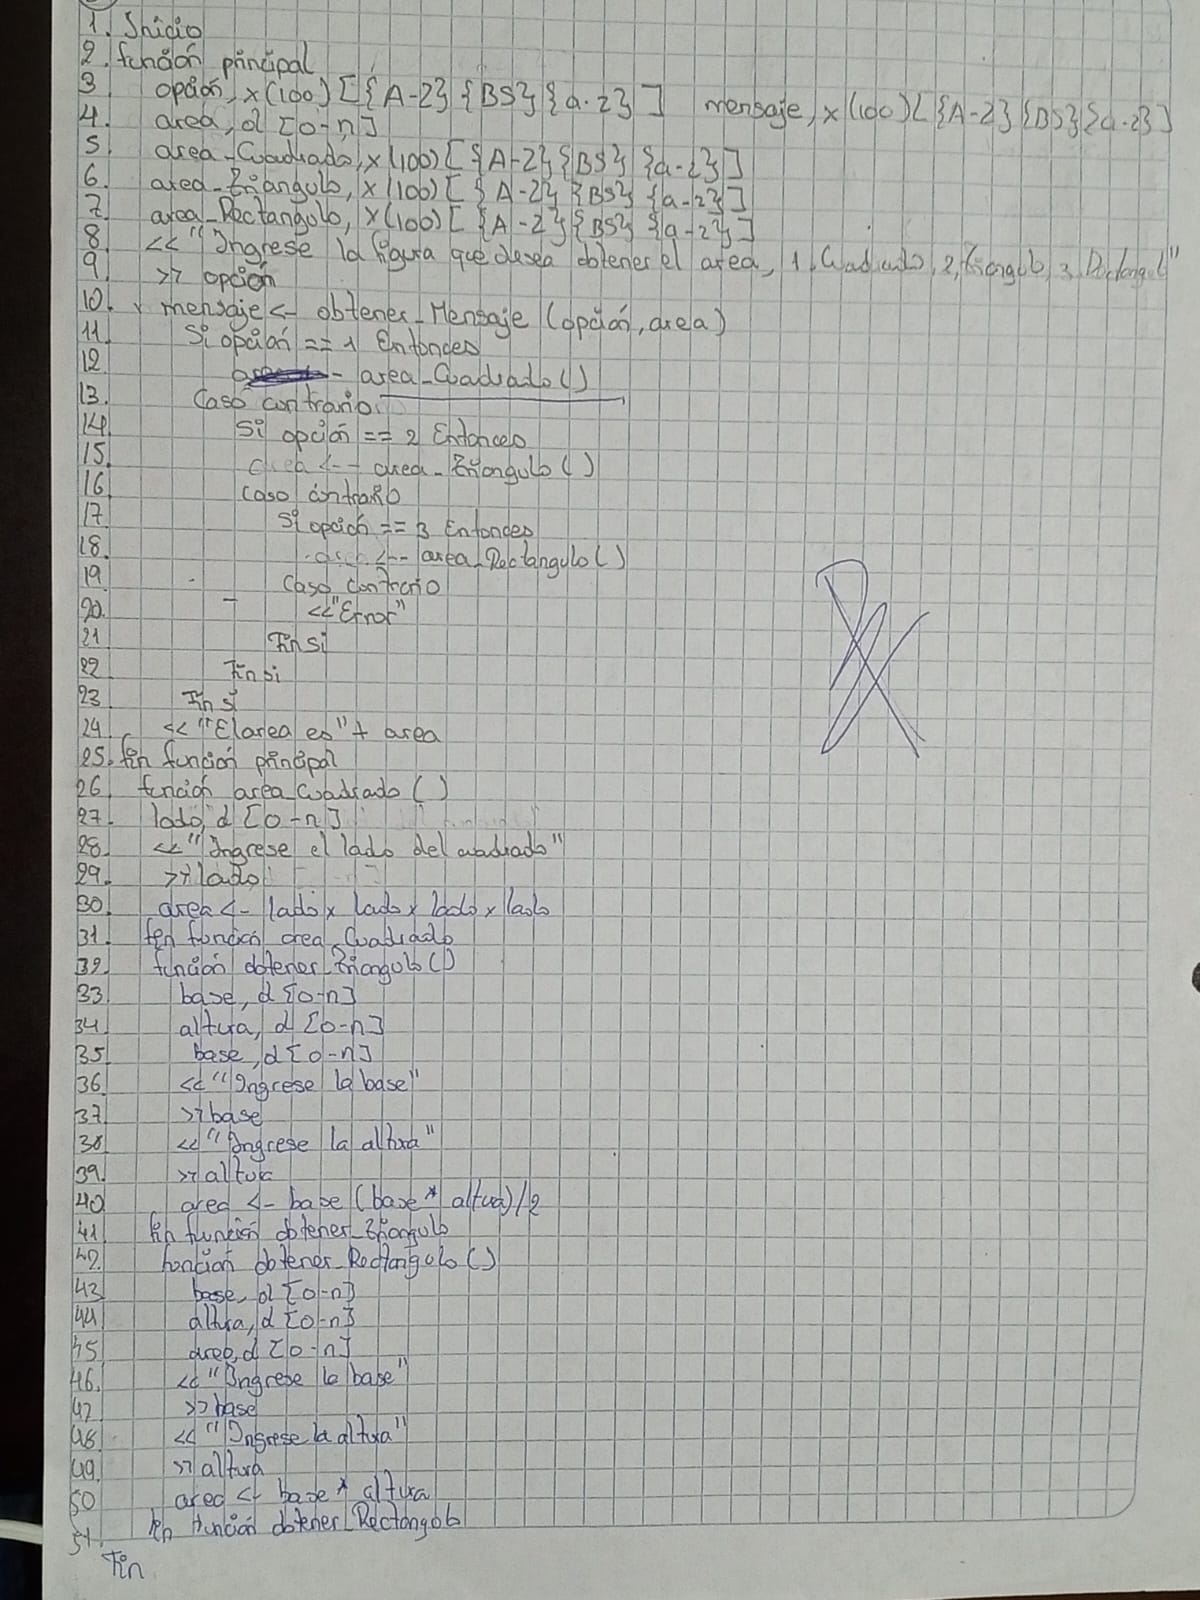 1. Inicio
2. función principal
3 opción, x(100) [{A-Z} {BS} {a-z}] mensaje, x(100) [{A-Z} {BS} {a-z}]
4. area, d [0-n]
5. area-Cuadrado, x(100) [{A-Z} {BS} {a-z}]
6. area-Triangulo, x(100) [{A-Z} {BS} {a-z}]
7. area-Rectangulo, x(100) [{A-Z} {BS} {a-z}]
8 << "Ingrese la figura que desea obtener el area, 1. Cuadrado, 2. triangulo, 3. Rectangulo"
9 >> opción
10. mensaje <- obtener-Mensaje (opción, area)
11. Si opción == 1 Entonces
12 - area-Cuadrado()
13. Caso contrario
14. Si opción == 2 Entonces
15. area <-- area-Triangulo()
16 Caso contrario
17 Si opción == 3 Entonces
18. area <-- area-Rectangulo()
19 Caso contrario
20. << "Error"
21 Fin si
22 Fin si
23 Fin si
24 << "El area es" + area
25. fin función principal
26. función area-Cuadrado ()
27. lado, d [0-n]
28 << "Ingrese el lado del cuadrado"
29. >> lado
30. area <- lado x lado x lado x lado
31 fin función area-Cuadrado
32 función obtener-Triangulo()
33 base, d [0-n]
34 altura, d [0-n]
35 base, d [0-n]
36 << "Ingrese la base"
37 >> base
38 << "Ingrese la altura"
39. >> altura
40 area <- base (base * altura)/2
41 fin función obtener-Triangulo
42. función obtener-Rectangulo()
43 base, d [0-n]
44 altura, d [0-n]
45 area, d [0-n]
46. << "Ingrese la base"
47 >> base
48 << "Ingrese la altura"
49. >> altura
50 area <- base * altura
51. fin función obtener-Rectangulo
Fin